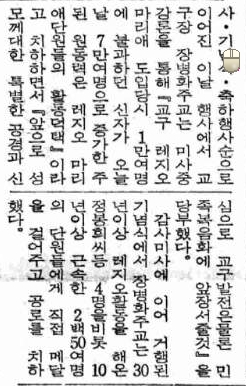 사·기 ·축하행사순으로
이어진 이날 행사에서 교
구장 장병화주교는 미사중
강론을 통해 『교구 레지오
마리애 도입당시 1만여명
에 불과하던 신자가 오늘
날 7만여명으로 증가한 주
된 원동력은 레지오 마리
애단원들의 활동덕택』이라
고 치하하면서 『앞으로 성
모께대한 특별한 공경과 신
심으로 교구발전은물론 민
족복음화에 앞장서줄것』을
당부했다.
감사미사에 이어 거행된
기념식에서 장병화주교는 30
년이상 레지오활동을 해온
정봉희씨등 4명을비롯 10
년이상 근속한 2백50여명
의 단원들에게 직접 메달
을 걸어주고 공로를 치하
했다.